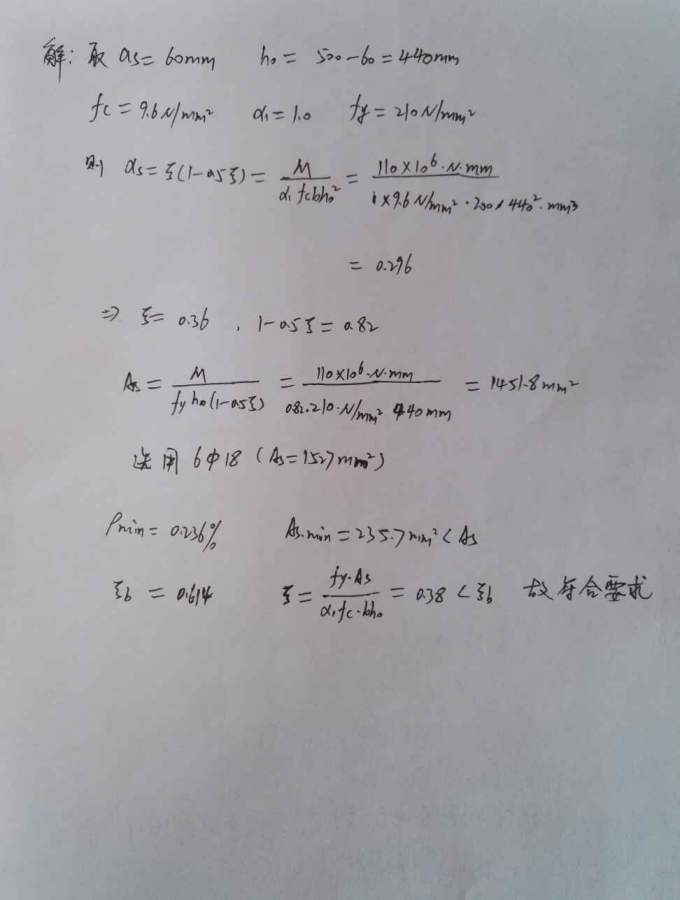 解: 取 as = 60mm h₀ = 500-60 = 440mm
fc = 9.6N/mm² α₁ = 1.0 fy = 210N/mm²
则 αs = ξ(1-0.5ξ) = M / α₁fcbh₀² = 110×10⁶·N·mm / 1×9.6N/mm²·200×440²·mm³
= 0.296
⇒ ξ = 0.36 , 1-0.5ξ = 0.82
As = M / fyh₀(1-0.5ξ) = 110×10⁶·N·mm / 0.82·210·N/mm² 440mm = 1451.8mm²
选用 6φ18 (As = 1527mm²)
ρmin = 0.236% As.min = 235.7mm² < As
ξb = 0.614 ξ = fy·As / α₁fc·bh₀ = 0.38 < ξb 故符合要求